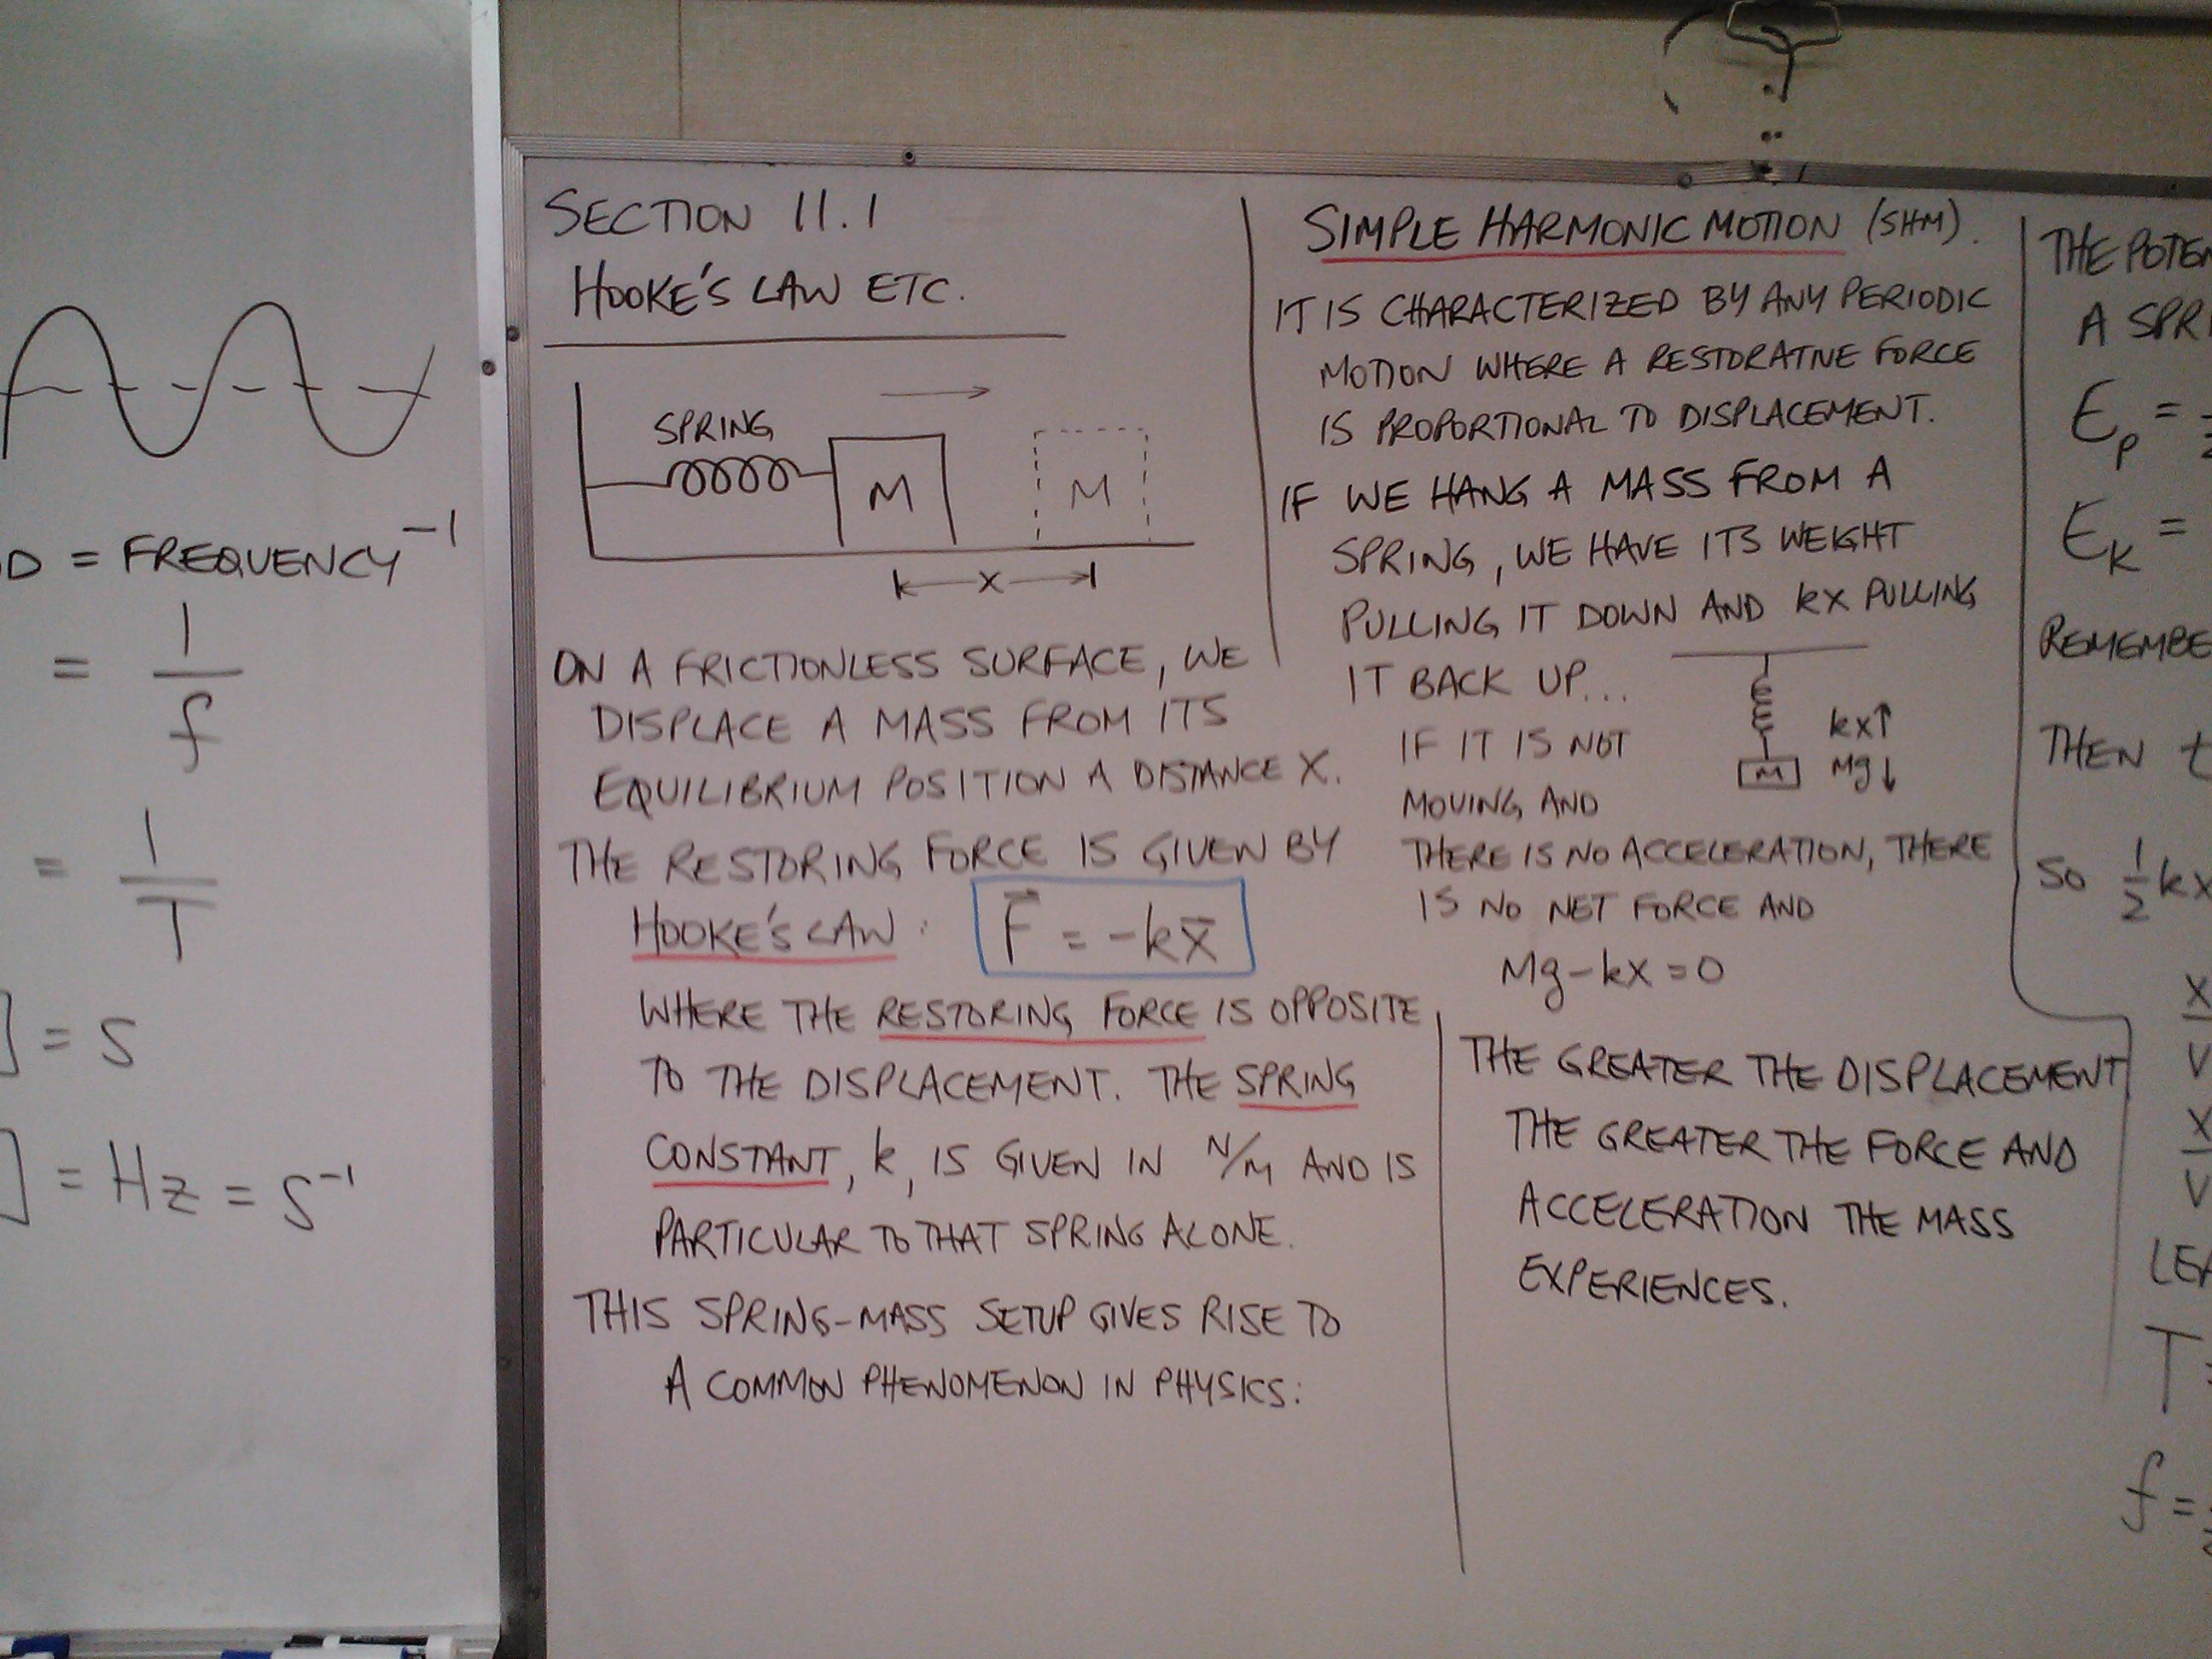 D = FREQUENCY⁻¹
= 1/f
= 1/T
] = S
] = Hz = S⁻¹
SECTION 11.1
HOOKE'S LAW ETC.
SPRING
M
M
x
ON A FRICTIONLESS SURFACE, WE
DISPLACE A MASS FROM ITS
EQUILIBRIUM POSITION A DISTANCE X.
THE RESTORING FORCE IS GIVEN BY
HOOKE'S LAW: F⃗ = -kx⃗
WHERE THE RESTORING FORCE IS OPPOSITE
TO THE DISPLACEMENT. THE SPRING
CONSTANT, k, IS GIVEN IN N/M AND IS
PARTICULAR TO THAT SPRING ALONE.
THIS SPRING-MASS SETUP GIVES RISE TO
A COMMON PHENOMENON IN PHYSICS:
SIMPLE HARMONIC MOTION (SHM).
IT IS CHARACTERIZED BY ANY PERIODIC
MOTION WHERE A RESTORATIVE FORCE
IS PROPORTIONAL TO DISPLACEMENT.
IF WE HANG A MASS FROM A
SPRING, WE HAVE ITS WEIGHT
PULLING IT DOWN AND kx PULLING
IT BACK UP...
IF IT IS NOT
MOVING AND
kx↑
M Mg↓
THERE IS NO ACCELERATION, THERE
IS NO NET FORCE AND
Mg-kx=0
THE GREATER THE DISPLACEMENT
THE GREATER THE FORCE AND
ACCELERATION THE MASS
EXPERIENCES.
THE POTEN
A SPRI
Eₚ =
Eₖ =
REMEMBE
THEN t
SO ½kx
X
V
X
V
LEA
T =
f =